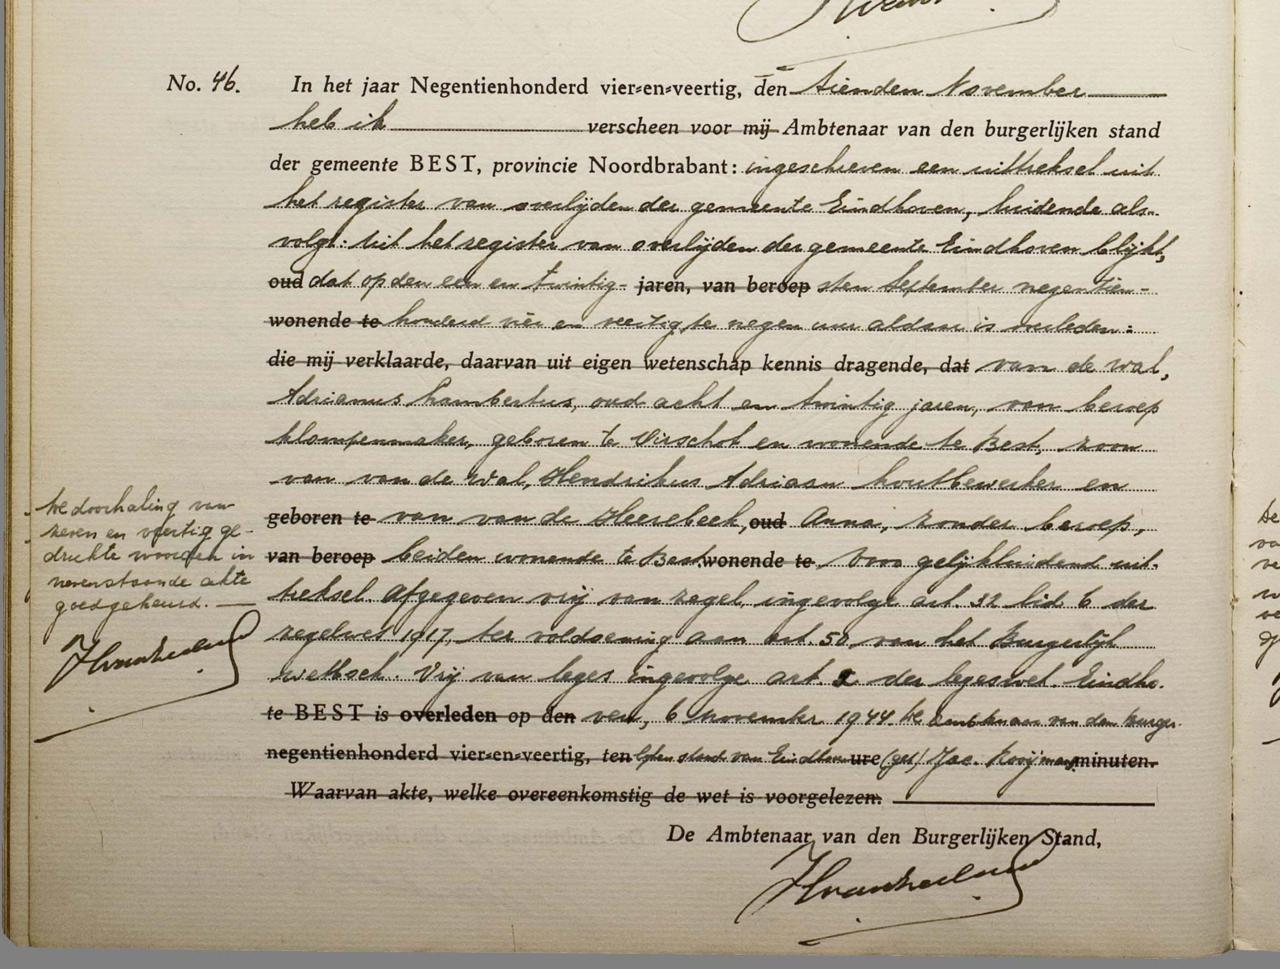 No. 46. In het jaar Negentienhonderd vier-en-veertig, den tienden November
heb ik verscheen voor mij Ambtenaar van den burgerlijken stand
der gemeente BEST, provincie Noordbrabant: ingeschreven een uittreksel uit
het register van overlijden der gemeente Eindhoven, luidende als
volgt: Uit het register van overlijden der gemeente Eindhoven blijkt,
oud dat op den een en twintig- jaren, van beroep sten September negentien-
wonende te honderd vier en veertig, te negen uur aldaar is overleden:
die mij verklaarde, daarvan uit eigen wetenschap kennis dragende, dat van de Wal,
Adrianus Lambertus, oud acht en twintig jaren, van beroep
klompenmaker, geboren te Oirschot en wonende te Best, zoon
van van de Wal, Hendrikus Adriaan houtbewerker en
geboren te van van de Heerebeek, oud Anna, zonder beroep,
van beroep beiden wonende te Best. wonende te Voor gelijkluidend uit-
treksel. Afgegeven vrij van zegel, ingevolge art. 32 lid 6 der
zegelwet 1917, ter voldoening aan art. 50 van het Burgerlijk
Wetboek. Vrij van leges ingevolge art. 2 der legeswet. Eindho-
te BEST is overleden op den ven, 6 November 1944. De ambtenaar van den burger-
negentienhonderd vier-en-veertig, ten lijken stand van Eindhoven ure (get) Jac. Kooijmans minuten.
Waarvan akte, welke overeenkomstig de wet is voorgelezen.
De Ambtenaar van den Burgerlijken Stand,
De doorhaling van
zeven en veertig ge-
drukte woorden in
nevenstaande akte
goedgekeurd.